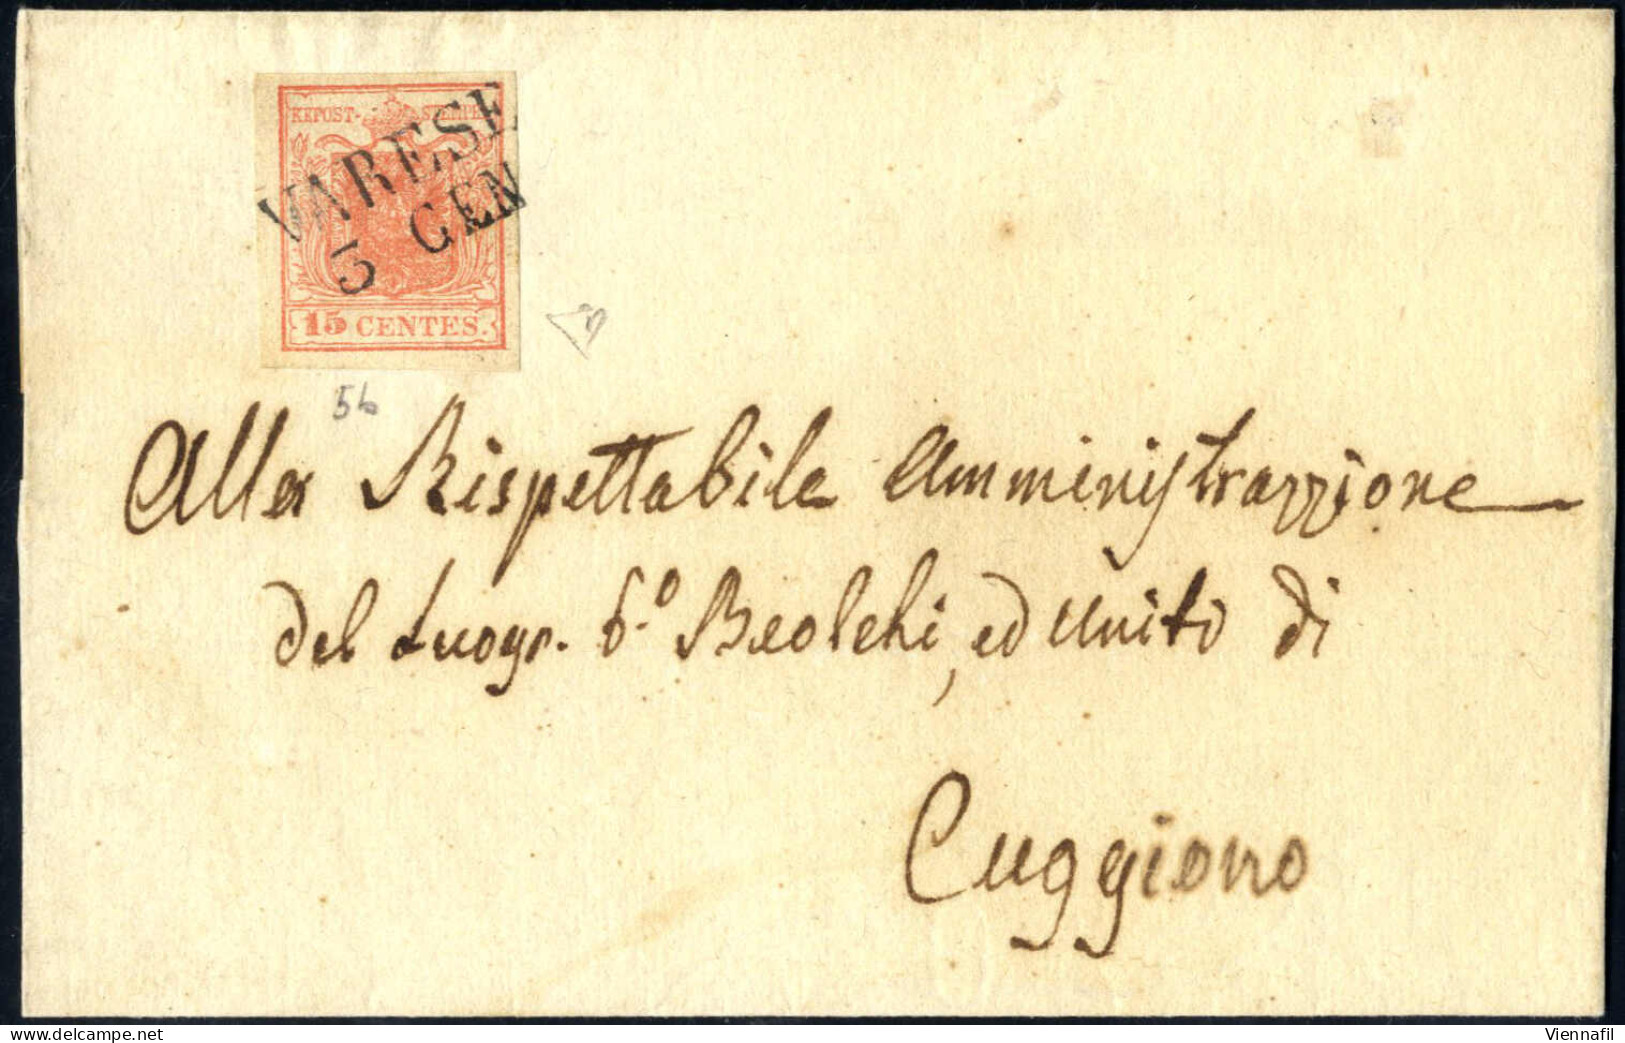 KKPOST-STEMPEL
VARESE
3 GEN
15 CENTES.
5b
Alla Rispettabile Amministrazzione
del Luogr. S.º Beolchi, ed Unito di
Cuggiono
www.delcampe.net
Viennafil